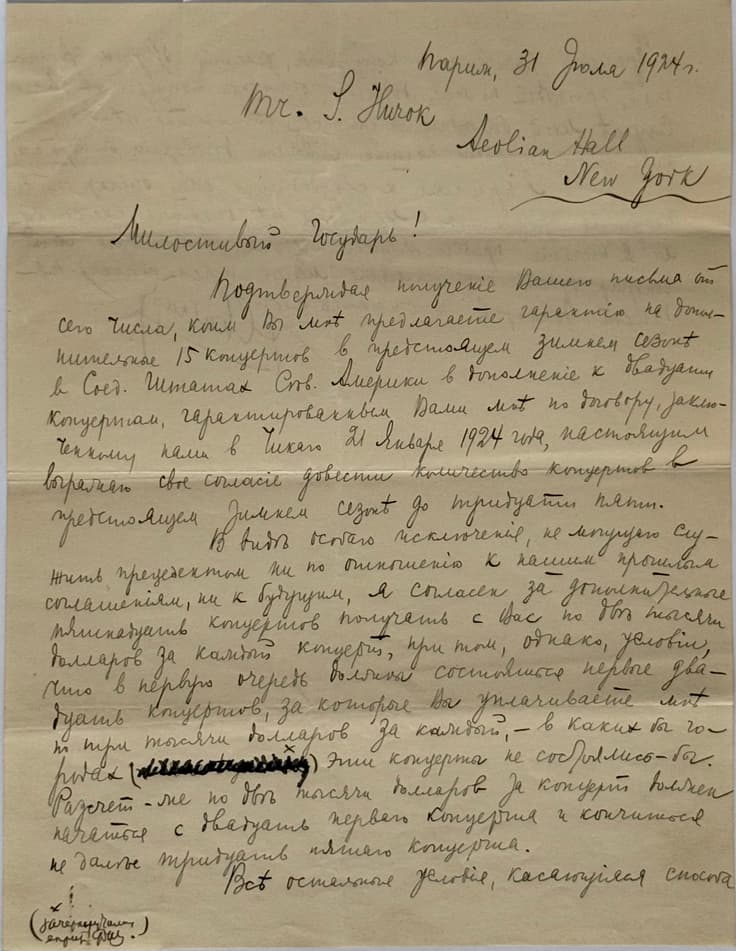 Париж, 31 Июля 1924 г.
Mr. S. Hurok
Aeolian Hall
New York
Милостивый Государь!
Подтверждая получение Вашего письма от
сего числа, коим Вы мнѣ предлагаете гарантію на допол-
нительные 15 концертов в предстоящем зимнем сезонѣ
в Соед. Штатах Сѣв. Америки в дополненіе к двадцати
концертам, гарантированным Вами мнѣ по договору, заклю-
ченному нами в Чикаго 21 Января 1924 года, настоящим
выражаю свое согласіе довести количество концертов в
предстоящем зимнем сезонѣ до тридцати пяти.
В видѣ особаго исключенія, не могущаго слу-
жить прецедентом ни по отношенію к нашим прошлым
соглашеніям, ни к будущим, я согласен за дополнительные
пятнадцать концертов получать с Вас по двѣ тысячи
долларов за каждый концерт, при том, однако, условіи,
что в первую очередь должны состояться первые два-
дцать концертов, за которые Вы уплачиваете мнѣ
по три тысячи долларов за каждый, – в каких бы го-
родах ( x ) эти концерты не состоялись-бы.
Разсчет-же по двѣ тысячи долларов за концерт должен
начаться с двадцать перваго концерта и кончиться
не далѣе тридцать пятаго концерта.
Всѣ остальные условія, касающіяся способа
x
(
.)